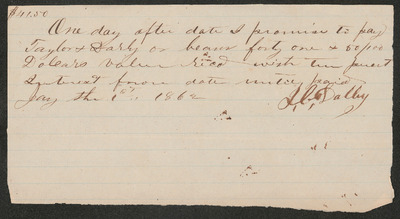 $41.50
One day after date I promise to pay
Taylor & Darby or bearer forty one & 50/100
Dolears value recd with ten presct
Interest from date until paid
Jay the 1st 1862
J. C. Dalby